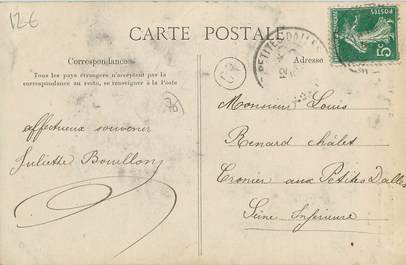 12-€
CARTE POSTALE
Correspondance
Tous les pays étrangers n'acceptent pas la
correspondance au recto, se renseigner à la Poste
Adresse
PETITES-DALLES
12
POSTES
5c
76
affectueux souvenir
Juliette Bouillon
Monsieur Louis
Renard châlet
Cronier aux Petites Dalles
Seine Inférieure